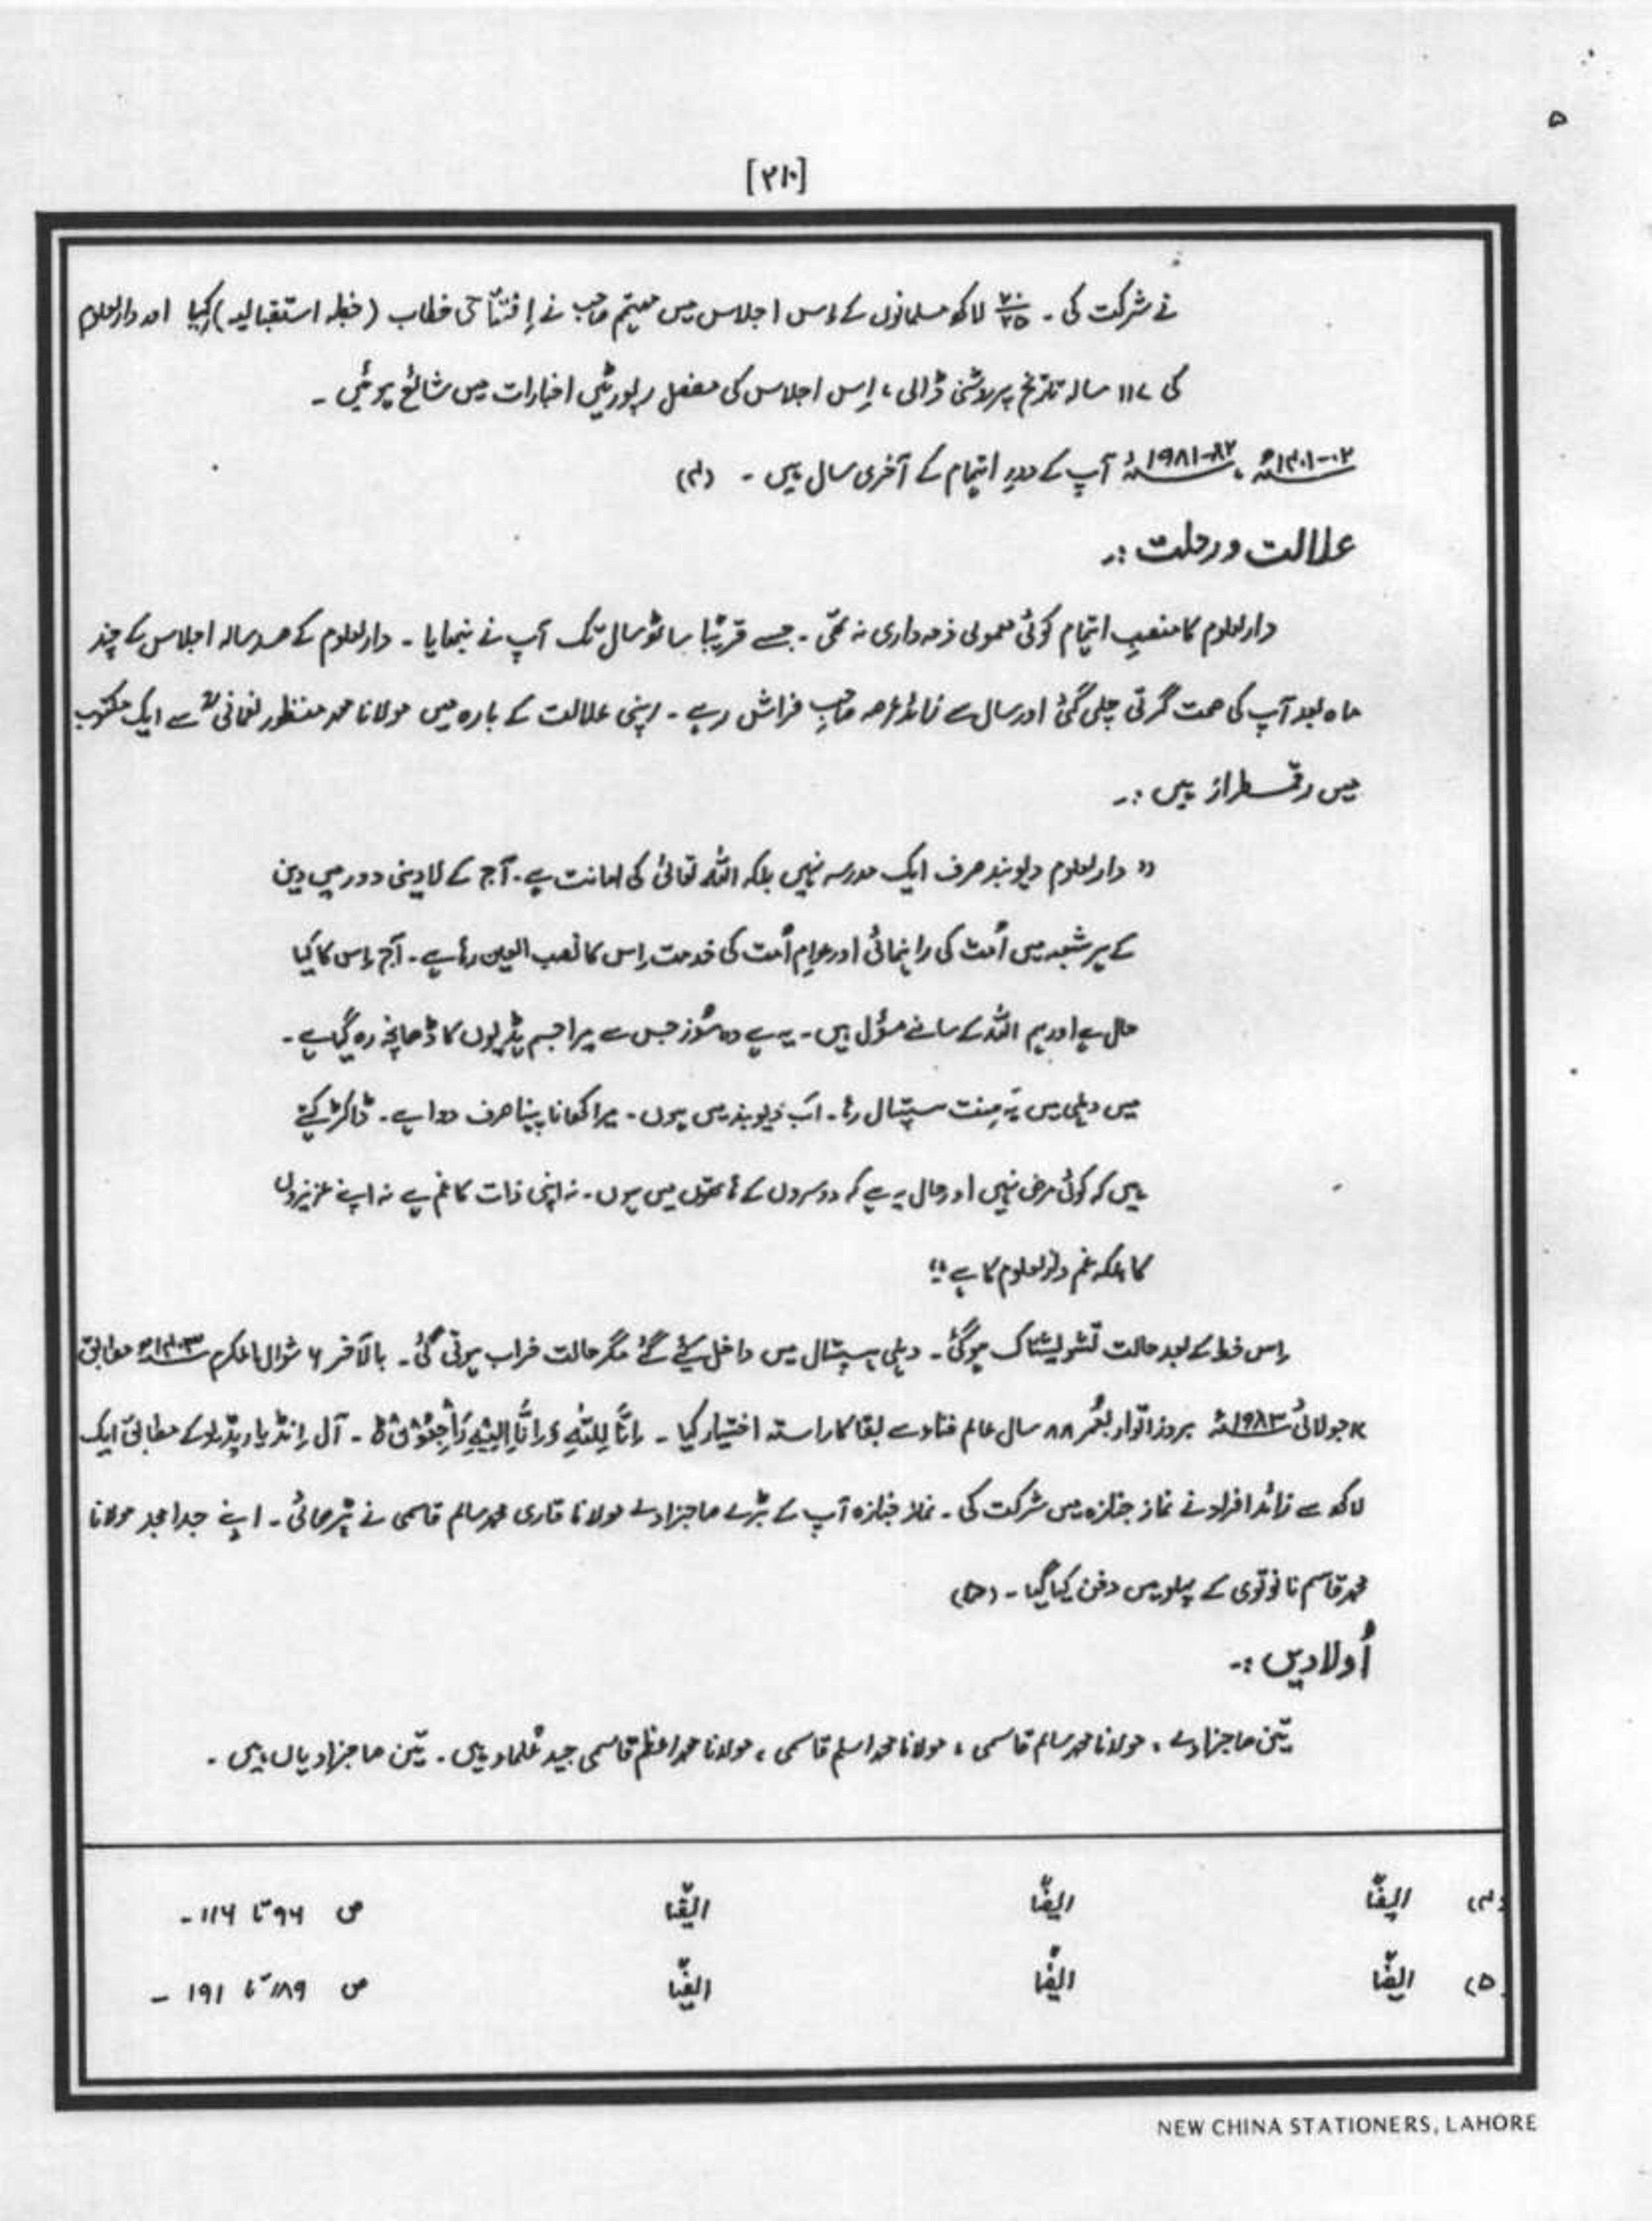 ۵
[۲۱۰]
نے شرکت کی ۔ ۲۰/۲۵ لاکھ مسلمانوں کے اس اجلاس میں مہتمم صاحب نے اِفتتاحی خطاب (خطبہ استقبالیہ) کیا اور دارالعلوم
کی ۱۱۷ سالہ تاریخ پر روشنی ڈالی، اِس اجلاس کی مفصل رپورٹیں اخبارات میں شائع ہوئیں ۔
۰۲-۱۴۰۱ھ، ۸۲-۱۹۸۱ء آپ کے دورِ اہتمام کے آخری سال ہیں ۔ (۴)
علالت و رحلت :۔
دارالعلوم کا منصبِ اہتمام کوئی معمولی ذمہ داری نہ تھی ۔ جسے قریبًا ساٹھ سال تک آپ نے نبھایا ۔ دارالعلوم کے صد سالہ اجلاس کے چند
ماہ بعد آپ کی صحت گرتی چلی گئی اور سال سے زائد عرصہ صاحبِ فراش رہے ۔ اپنی علالت کے بارہ میں مولانا محمد منظور نعمانیؒ سے ایک مکتوب
میں رقمطراز ہیں :۔
" دارالعلوم دیوبند صرف ایک مدرسہ نہیں بلکہ اللہ تعالیٰ کی امانت ہے ۔ آج کے لادینی دور میں دین
کے ہر شعبہ میں اُمت کی راہنمائی اور عوام اُمت کی خدمت اِس کا نصب العین رہا ہے ۔ آج اِس کا کیا
حال ہے اور ہم اللہ کے سامنے مسؤل ہیں ۔ یہ ہے وہ سوز جس سے میرا جسم ہڈیوں کا ڈھانچہ رہ گیا ہے ۔
میں دہلی میں پَنت ہسپتال رہا ۔ اَب دیوبند میں ہوں ۔ میرا کھانا پینا صرف دوا ہے ۔ ڈاکٹر کہتے
ہیں کہ کوئی مرض نہیں اور حال یہ ہے کہ دوسروں کے ہاتھوں میں ہوں ۔ نہ اپنی ذات کا غم ہے نہ اپنے عزیزوں
کا بلکہ غم دارالعلوم کا ہے "
اِس خط کے بعد حالت تشویشناک ہوگئی ۔ دہلی ہسپتال میں داخل کئے گئے مگر حالت خراب ہوتی گئی ۔ بالآخر ۶ شوال المکرم ۱۴۰۳ھ مطابق
۱۷ جولائی ۱۹۸۳ء بروز اتوار بعمر ۸۸ سال عالم فناء سے بقا کا راستہ اختیار کیا ۔ اِنَّا لِلّٰهِ وَاِنَّا اِلَیْهِ رَاجِعُوْنَ ط ۔ آل اِنڈیا ریڈیو کے مطابق ایک
لاکھ سے زائد افراد نے نماز جنازہ میں شرکت کی ۔ نماز جنازہ آپ کے بڑے صاحبزادے مولانا قاری محمد سالم قاسمی نے پڑھائی ۔ اپنے جدامجد مولانا
محمد قاسم نانوتوی کے پہلو میں دفن کیا گیا ۔ (۵)
اُولادیں :۔
تین صاحبزادے ، مولانا محمد سالم قاسمی ، مولانا محمد اسلم قاسمی ، مولانا محمد اعظم قاسمی جید عُلماء ہیں ۔ تین صاحبزادیاں ہیں ۔
(۴) ایضًا ایضًا ایضًا ص ۹۶ تا ۱۱۶ ۔
(۵) ایضًا ایضًا ایضًا ص ۱۸۹ تا ۱۹۱ ۔
NEW CHINA STATIONERS, LAHORE